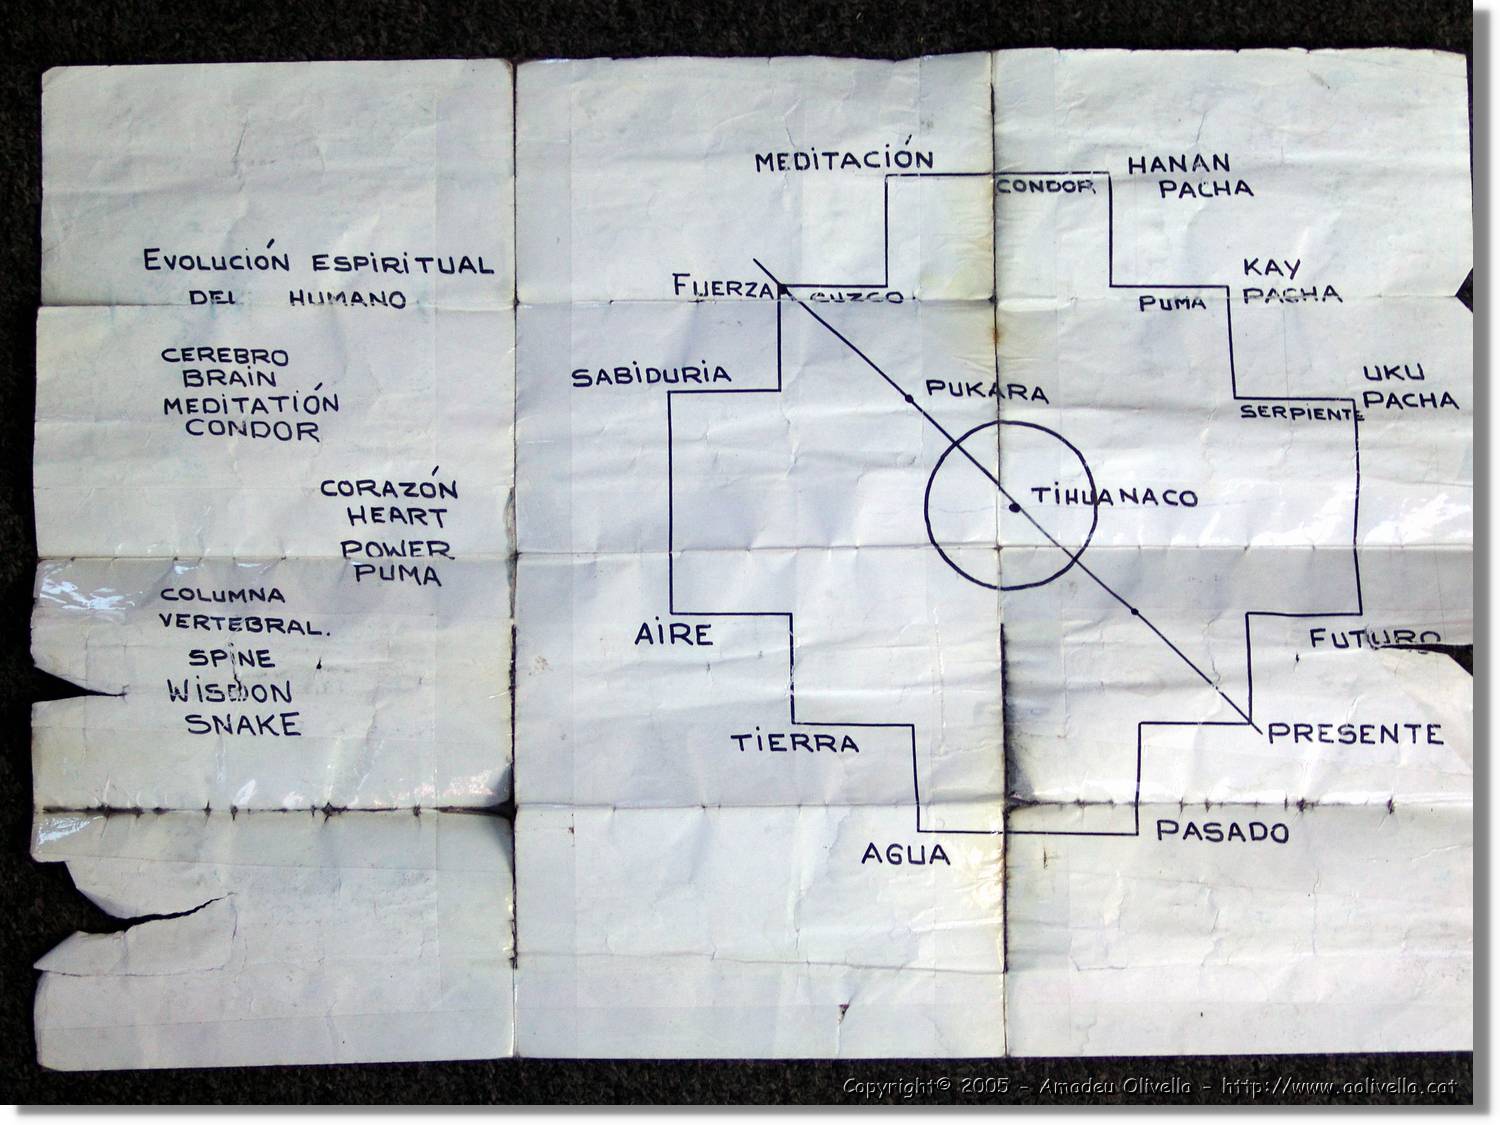 EVOLUCIÓN ESPIRITUAL
DEL HUMANO
CEREBRO
BRAIN
MEDITATIÓN
CONDOR
CORAZÓN
HEART
POWER
PUMA
COLUMNA
VERTEBRAL.
SPINE
WISDON
SNAKE
MEDITACIÓN
CONDOR
HANAN
PACHA
FUERZA
CUZCO
PUMA
KAY
PACHA
SABIDURIA
PUKARA
SERPIENTE
UKU
PACHA
TIHUANACO
AIRE
FUTURO
TIERRA
PRESENTE
AGUA
PASADO
Copyright© 2005 - Amadeu Olivella - http://www.aolivella.cat